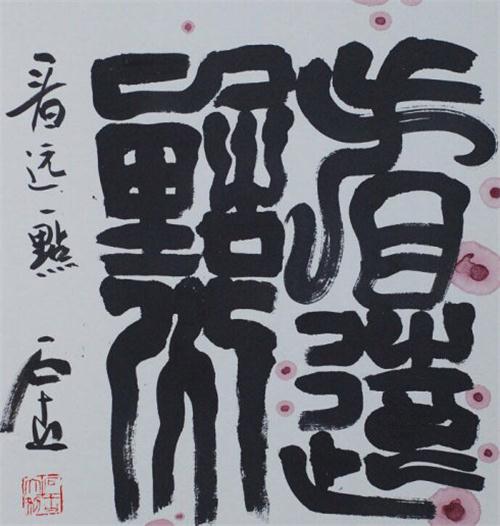 看遠
一點
看远一點
石